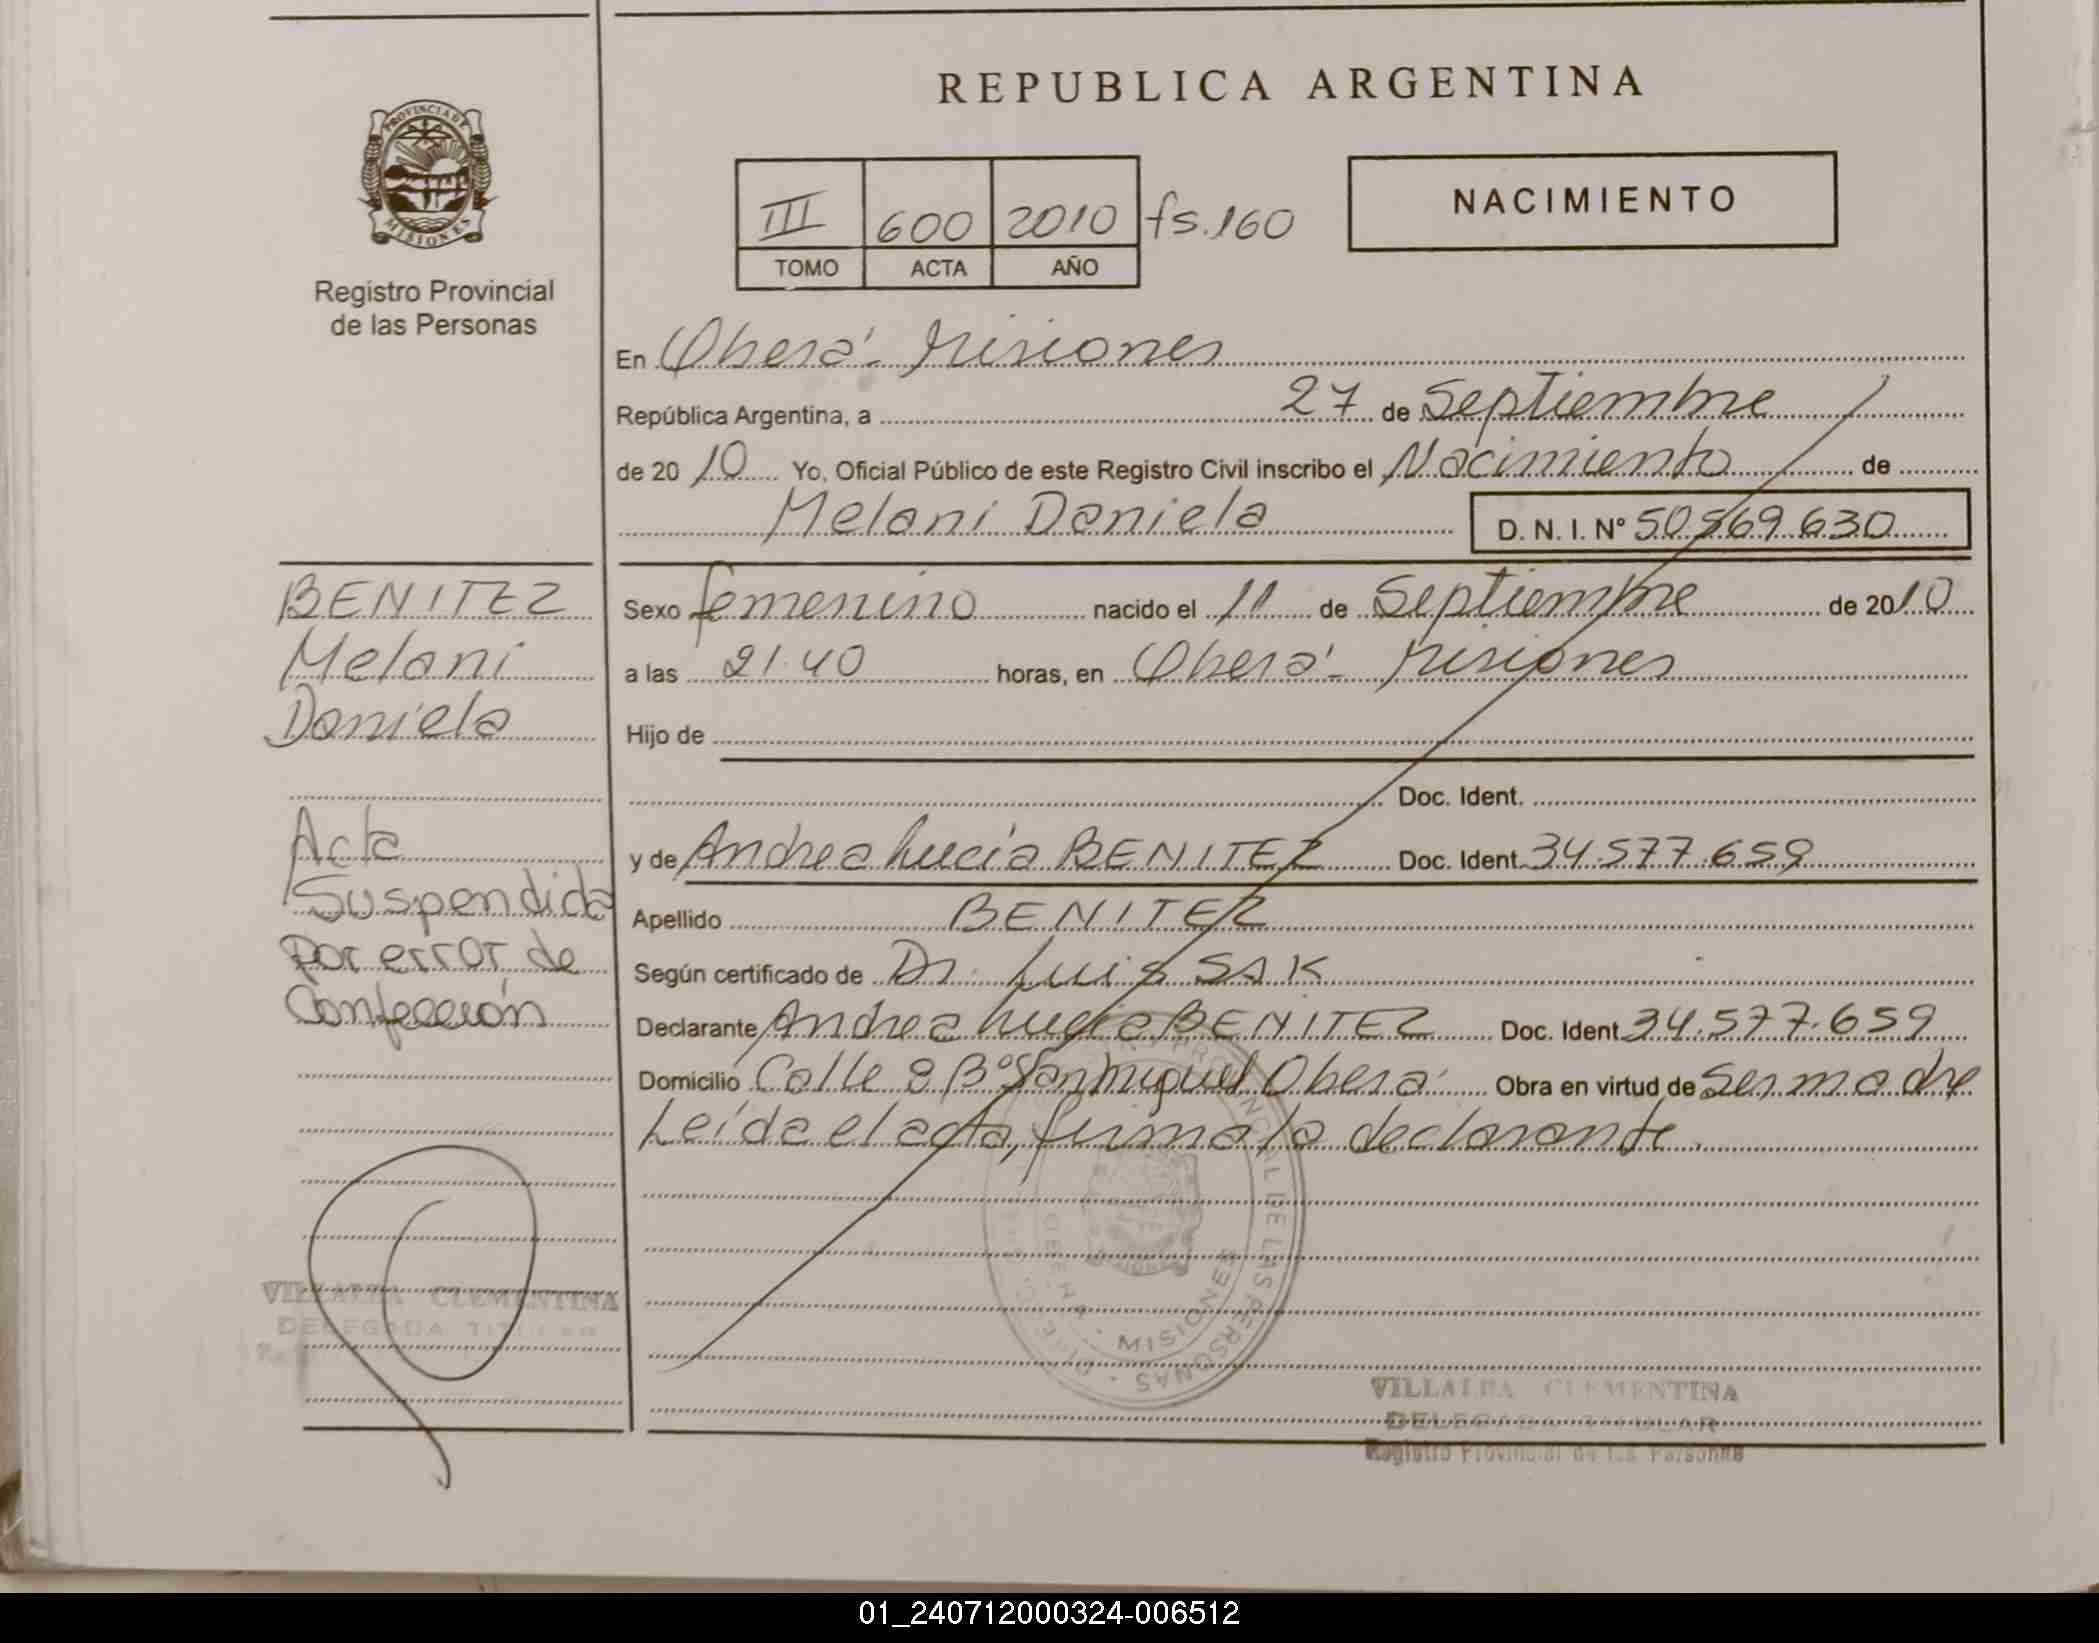 REPUBLICA ARGENTINA
PROVINCIA DE MISIONES
Registro Provincial
de las Personas
III 600 2010 fs.160
TOMO ACTA AÑO
NACIMIENTO
En Oberá - Misiones
República Argentina, a 27 de Septiembre
de 2010 Yo, Oficial Público de este Registro Civil inscribo el Nacimiento de
Melani Daniela D. N. I. Nº 50.569.630
BENITEZ
Melani
Daniela
Acta
Suspendida
Por error de
Confección
Sexo femenino nacido el 11 de Septiembre de 2010
a las 21.40 horas, en Oberá - Misiones
Hijo de
Doc. Ident.
y de Andrea Lucía BENITEZ Doc. Ident. 34.577.659
Apellido BENITEZ
Según certificado de Dr. Luis SAK
Declarante Andrea Lucía BENITEZ Doc. Ident. 34.577.659
Domicilio Calle 8 Bº San Miguel Oberá Obra en virtud de Ser madre
Leída el acta, firma la declarante.
PROVINCIAL DE LAS PERSONAS
MISIONES
VILLALBA CLEMENTINA
DELEGADA TITULAR
VILLALBA CLEMENTINA
DELEGADA TITULAR
Registro Provincial de las Personas
01_240712000324-006512